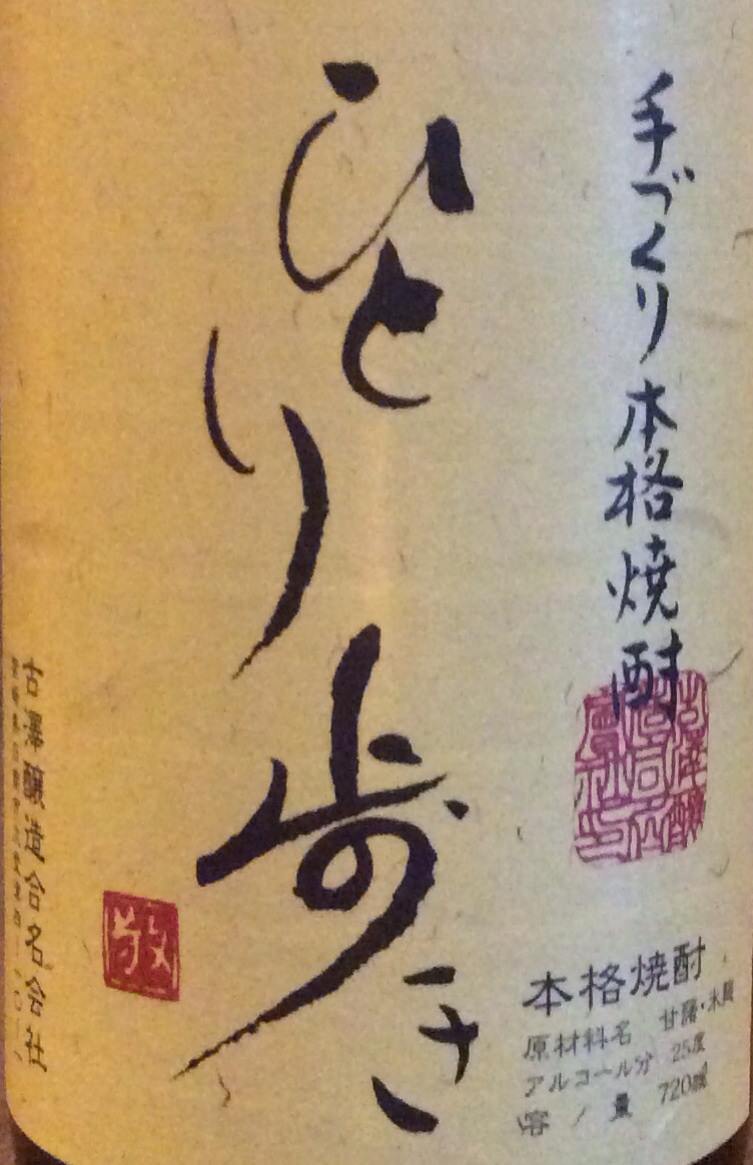 手づくり本格焼酎
ひとり歩き
本格焼酎
原材料名 甘藷・米麹
アルコール分 25度
容量 720ml
古澤醸造合名会社